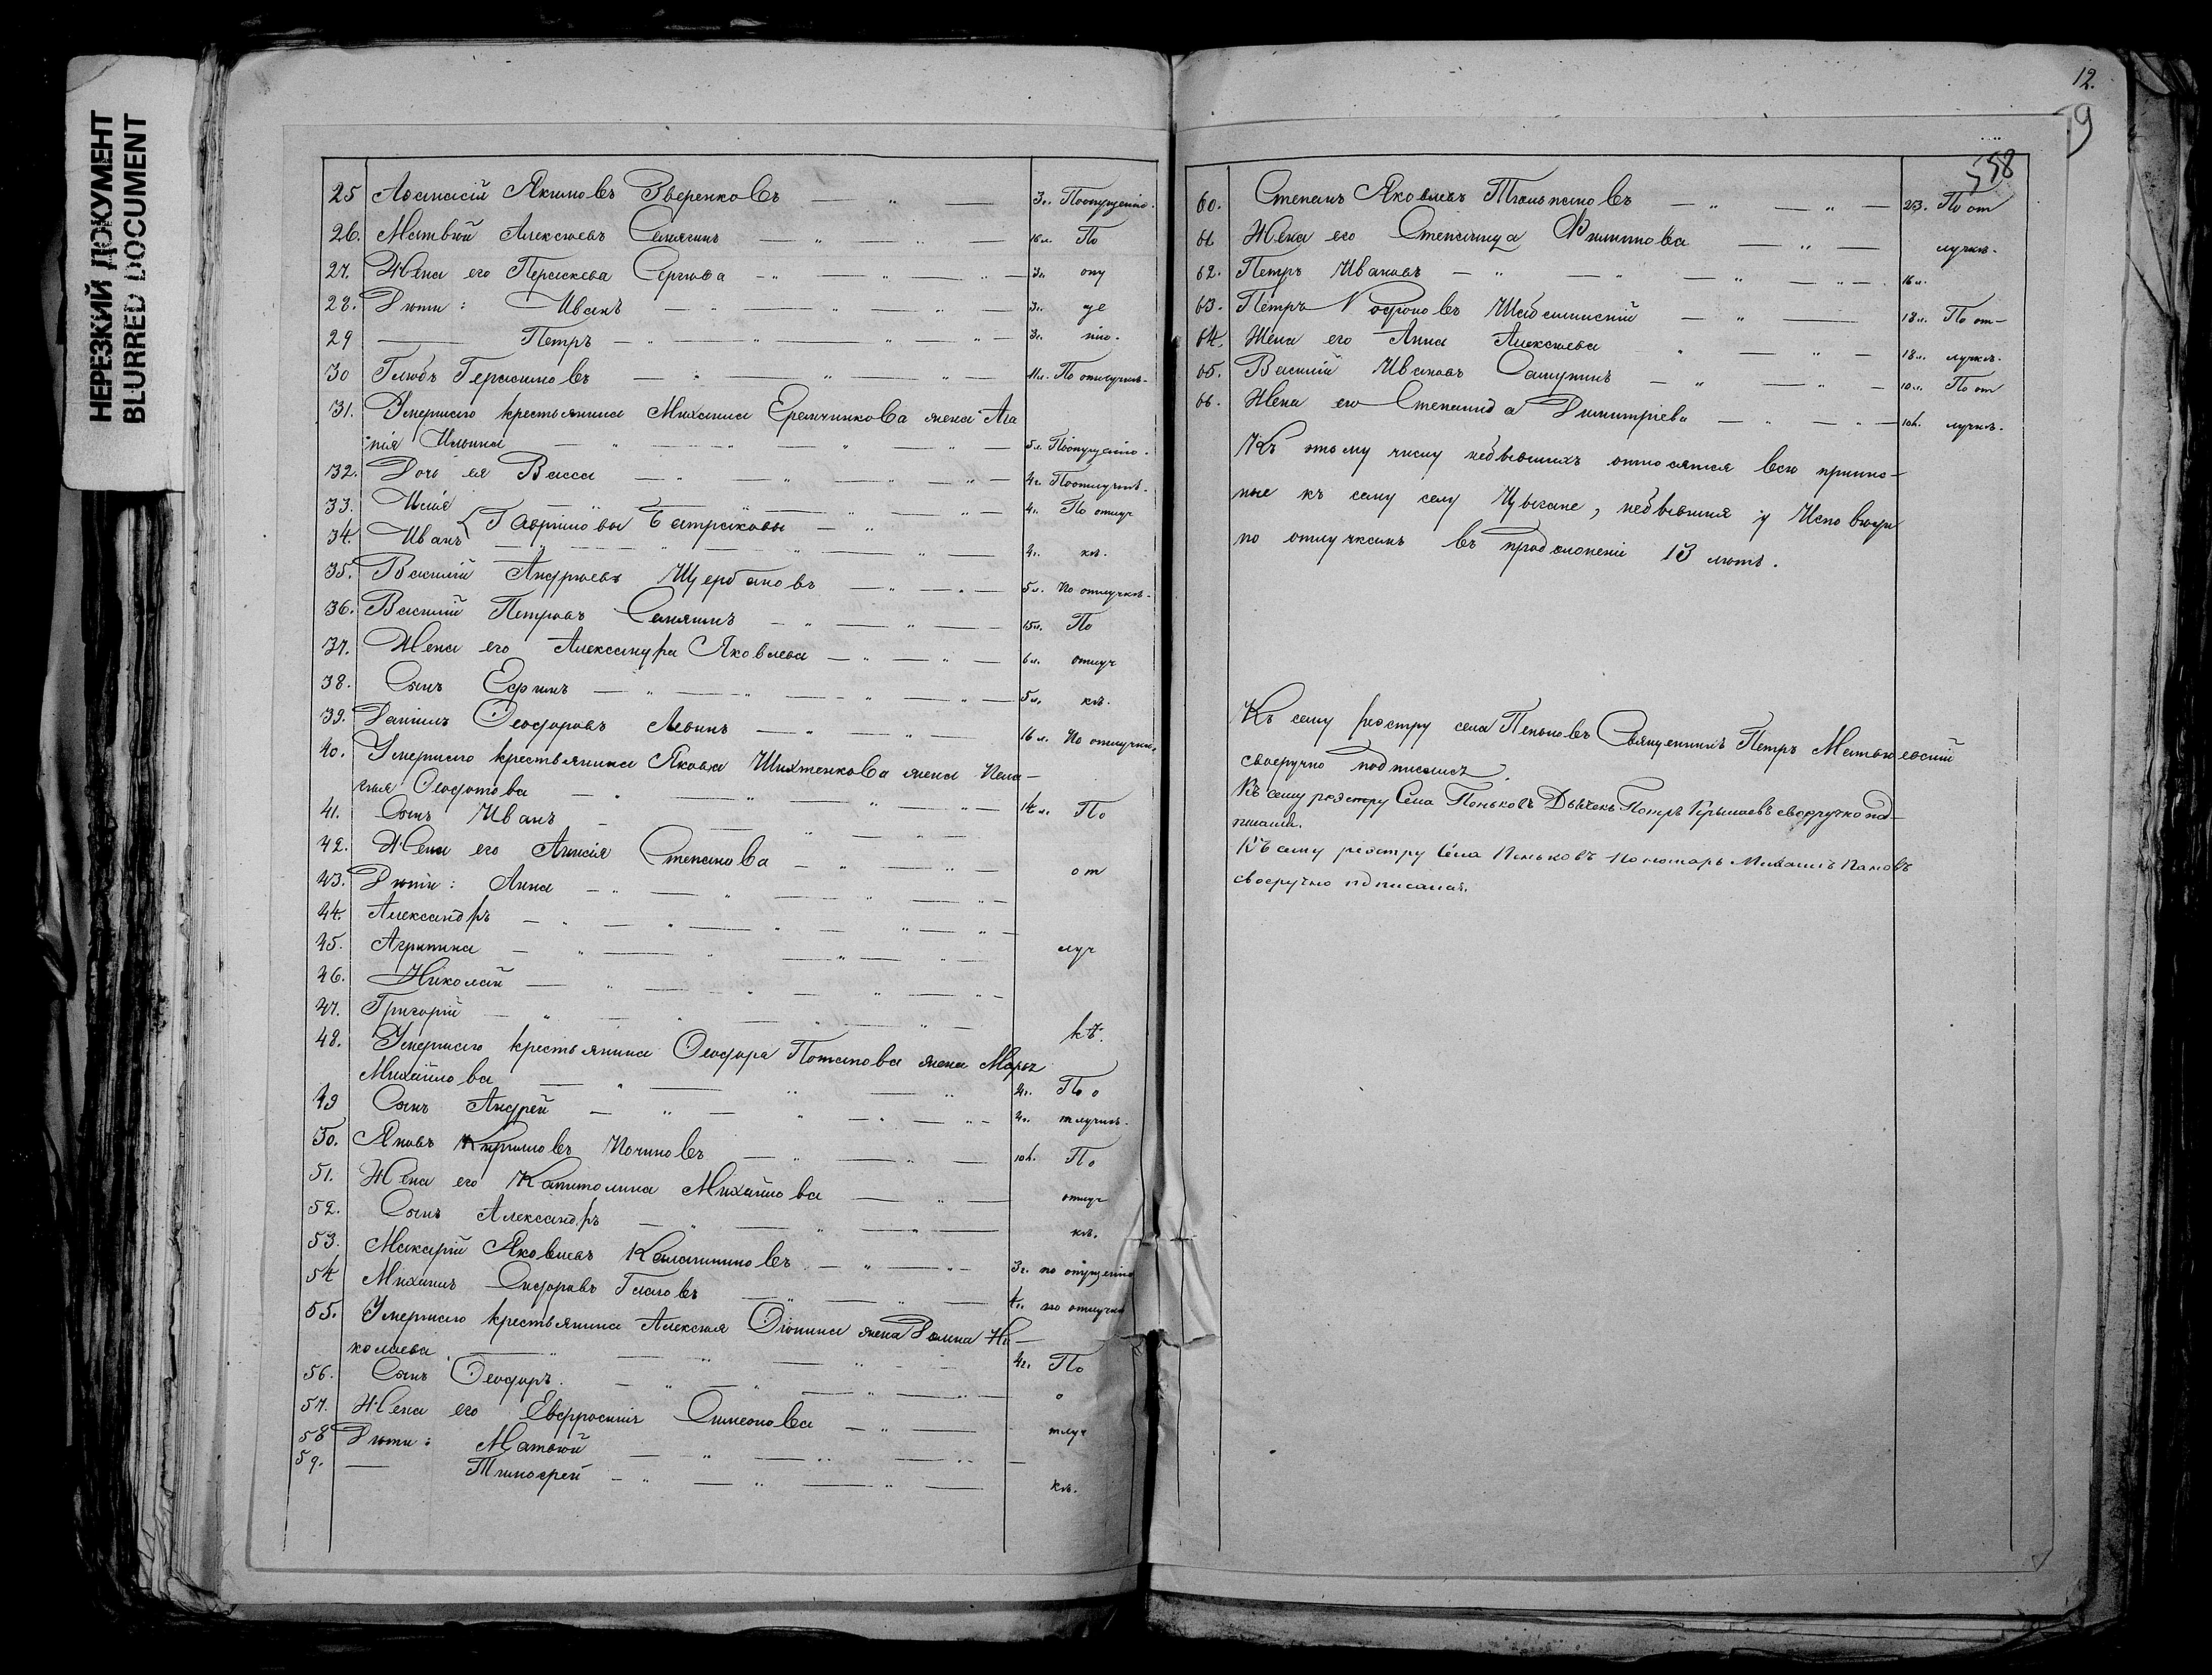 НЕРЕЗКИЙ ДОКУМЕНТ
BLURRED DOCUMENT
25 Аѳанасій Якимовъ Зверенковъ — „ — 3г. По опущенію.
26. Матвѣй Алексѣевъ Семягинъ — „ — „ — 16 л. По
27. Жена его Параскева Сергѣева — „ — „ — „ — 3г. опу
28. Дѣти: Иванъ — „ — „ — „ — 3г. ще
29 — Петръ — „ — „ — „ — „ 3г. нію.
30 Глѣбъ Герасимовъ — „ — „ — „ — 11л. По отлучкѣ.
31. Умершаго крестьянина Михаила жена Ага
пія Ильина — „ — „ — „ — „ — 5л. По опущенію.
32. Дочь ея Васса — „ — „ — „ — 4г. По отлучкѣ.
33. Илія 4г. По отлуч
{ Гавриловы Батраковы — „
34. Иванъ — „ — „ — 4г. кѣ.
35. Василій Андреевъ Щербаковъ — „ — „ — 5л. По отлучкѣ.
36. Василій Петровъ Семягинъ — „ — „ — 15л. По
37. Жена его Александра Яковлева — „ — „ — 6л. отлуч
38. Сынъ Ефимъ — „ — „ — „ — „ — 5л. кѣ.
39. Даніилъ Ѳеодоровъ Левинъ — „ — „ — 16 л. По отлучкѣ.
40. Умершаго крестьянина Якова Шихтенкова жена Пела-
гія Ѳеодотова — „ — „ — „ — „ — 14л. По
41. Сынъ Иванъ — „ — „ — „
42. Жена его Анисія Степанова — „ — „ — от
43. Дѣти: Анна — „ — „ — „ — „ —
44. Александръ — „ — „ — „ — „ — „ —
45. Агрипина — „ — „ — „ — „ — луч
46. Николай — „ — „ — „ — „ —
47. Григорій — „ — „ — „ — „ —
кѣ.
48. Умершаго крестьянина Ѳеодора Потапова жена Марѳа
Михайлова — „ — „ — „ 4г. По о
49 Сынъ Андрей — „ — „ — „ — 4г. тлучкѣ.
50. Яковъ Кириловъ Починовъ — „ — „ — 10 л. По
51. Жена его Капитолина Михайлова — „ — отлуч
52. Сынъ Александръ — „ — „ — „ — кѣ.
53. Макарій Яковлевъ Калашниковъ — „ — „ — 3г. по опущенію
54 Михаилъ Глаговъ — „ — „ — по отлучкѣ
55. Умершаго крестьянина Алексѣя жена Домна Ни-
колаева — „ — „ — „ — 4г. По
56. Сынъ Ѳеодоръ. — „ — „ — „ — „ — о
57. Жена его Евфросинія Симеонова — „ — тлуч
58 Дѣти: Матвѣй — „ — „ — „ —
59. — Тимофей — „ — „ — „ — кѣ.
12.
9
558
60. Степанъ Яковлевъ — „ — „ — 23. По от
61. Жена его Степанида Филипова — „ — лучкѣ.
62. Петръ Ивановъ — „ — „ — „ — „ — 16л.
63. Петръ Шабалинскій — „ — 18л. По от-
64. Жена его Анна Алексѣева — „ — „ — 18л. лучкѣ.
65. Василій Ивановъ Самупинъ — „ — „ — 10л. По от
66. Жена его Степанида Димитріева — „ — „ — 10л. лучкѣ.
Къ этому числу небывшихъ относятся всѣ припис-
ные къ сему селу Цыгане, небывшія у Исповѣди
по отлучкамъ въ продолженіи 13 лѣтъ.
Къ сему реэстру села Пеньковъ Священникъ Петръ Матвѣевскій
своеручно подписался.
Къ сему реэстру Села Пеньковъ Дьячекъ Петръ Крылаевъ своеручно под-
писался.
Къ сему реэстру Села Пеньковъ Пономарь Михаилъ Пановъ
своеручно подписался.